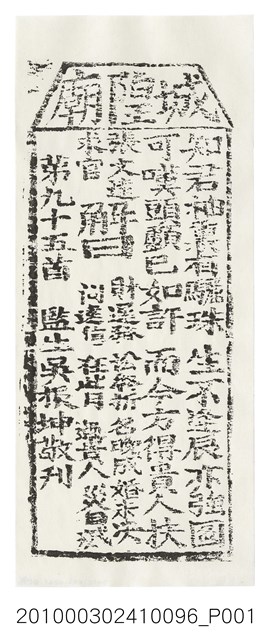 城隍廟
知君袖裏有驪珠 生不逢辰亦強圖
可嘆頭顱已如許 而今方得貴人扶
張文遠
求官
解曰
財運 訟 折 名晚成 婚未決
問遠信 在此日 遇貴人 災自滅
第九十五首 監生吳振坤敬刊
201000302410096_P001